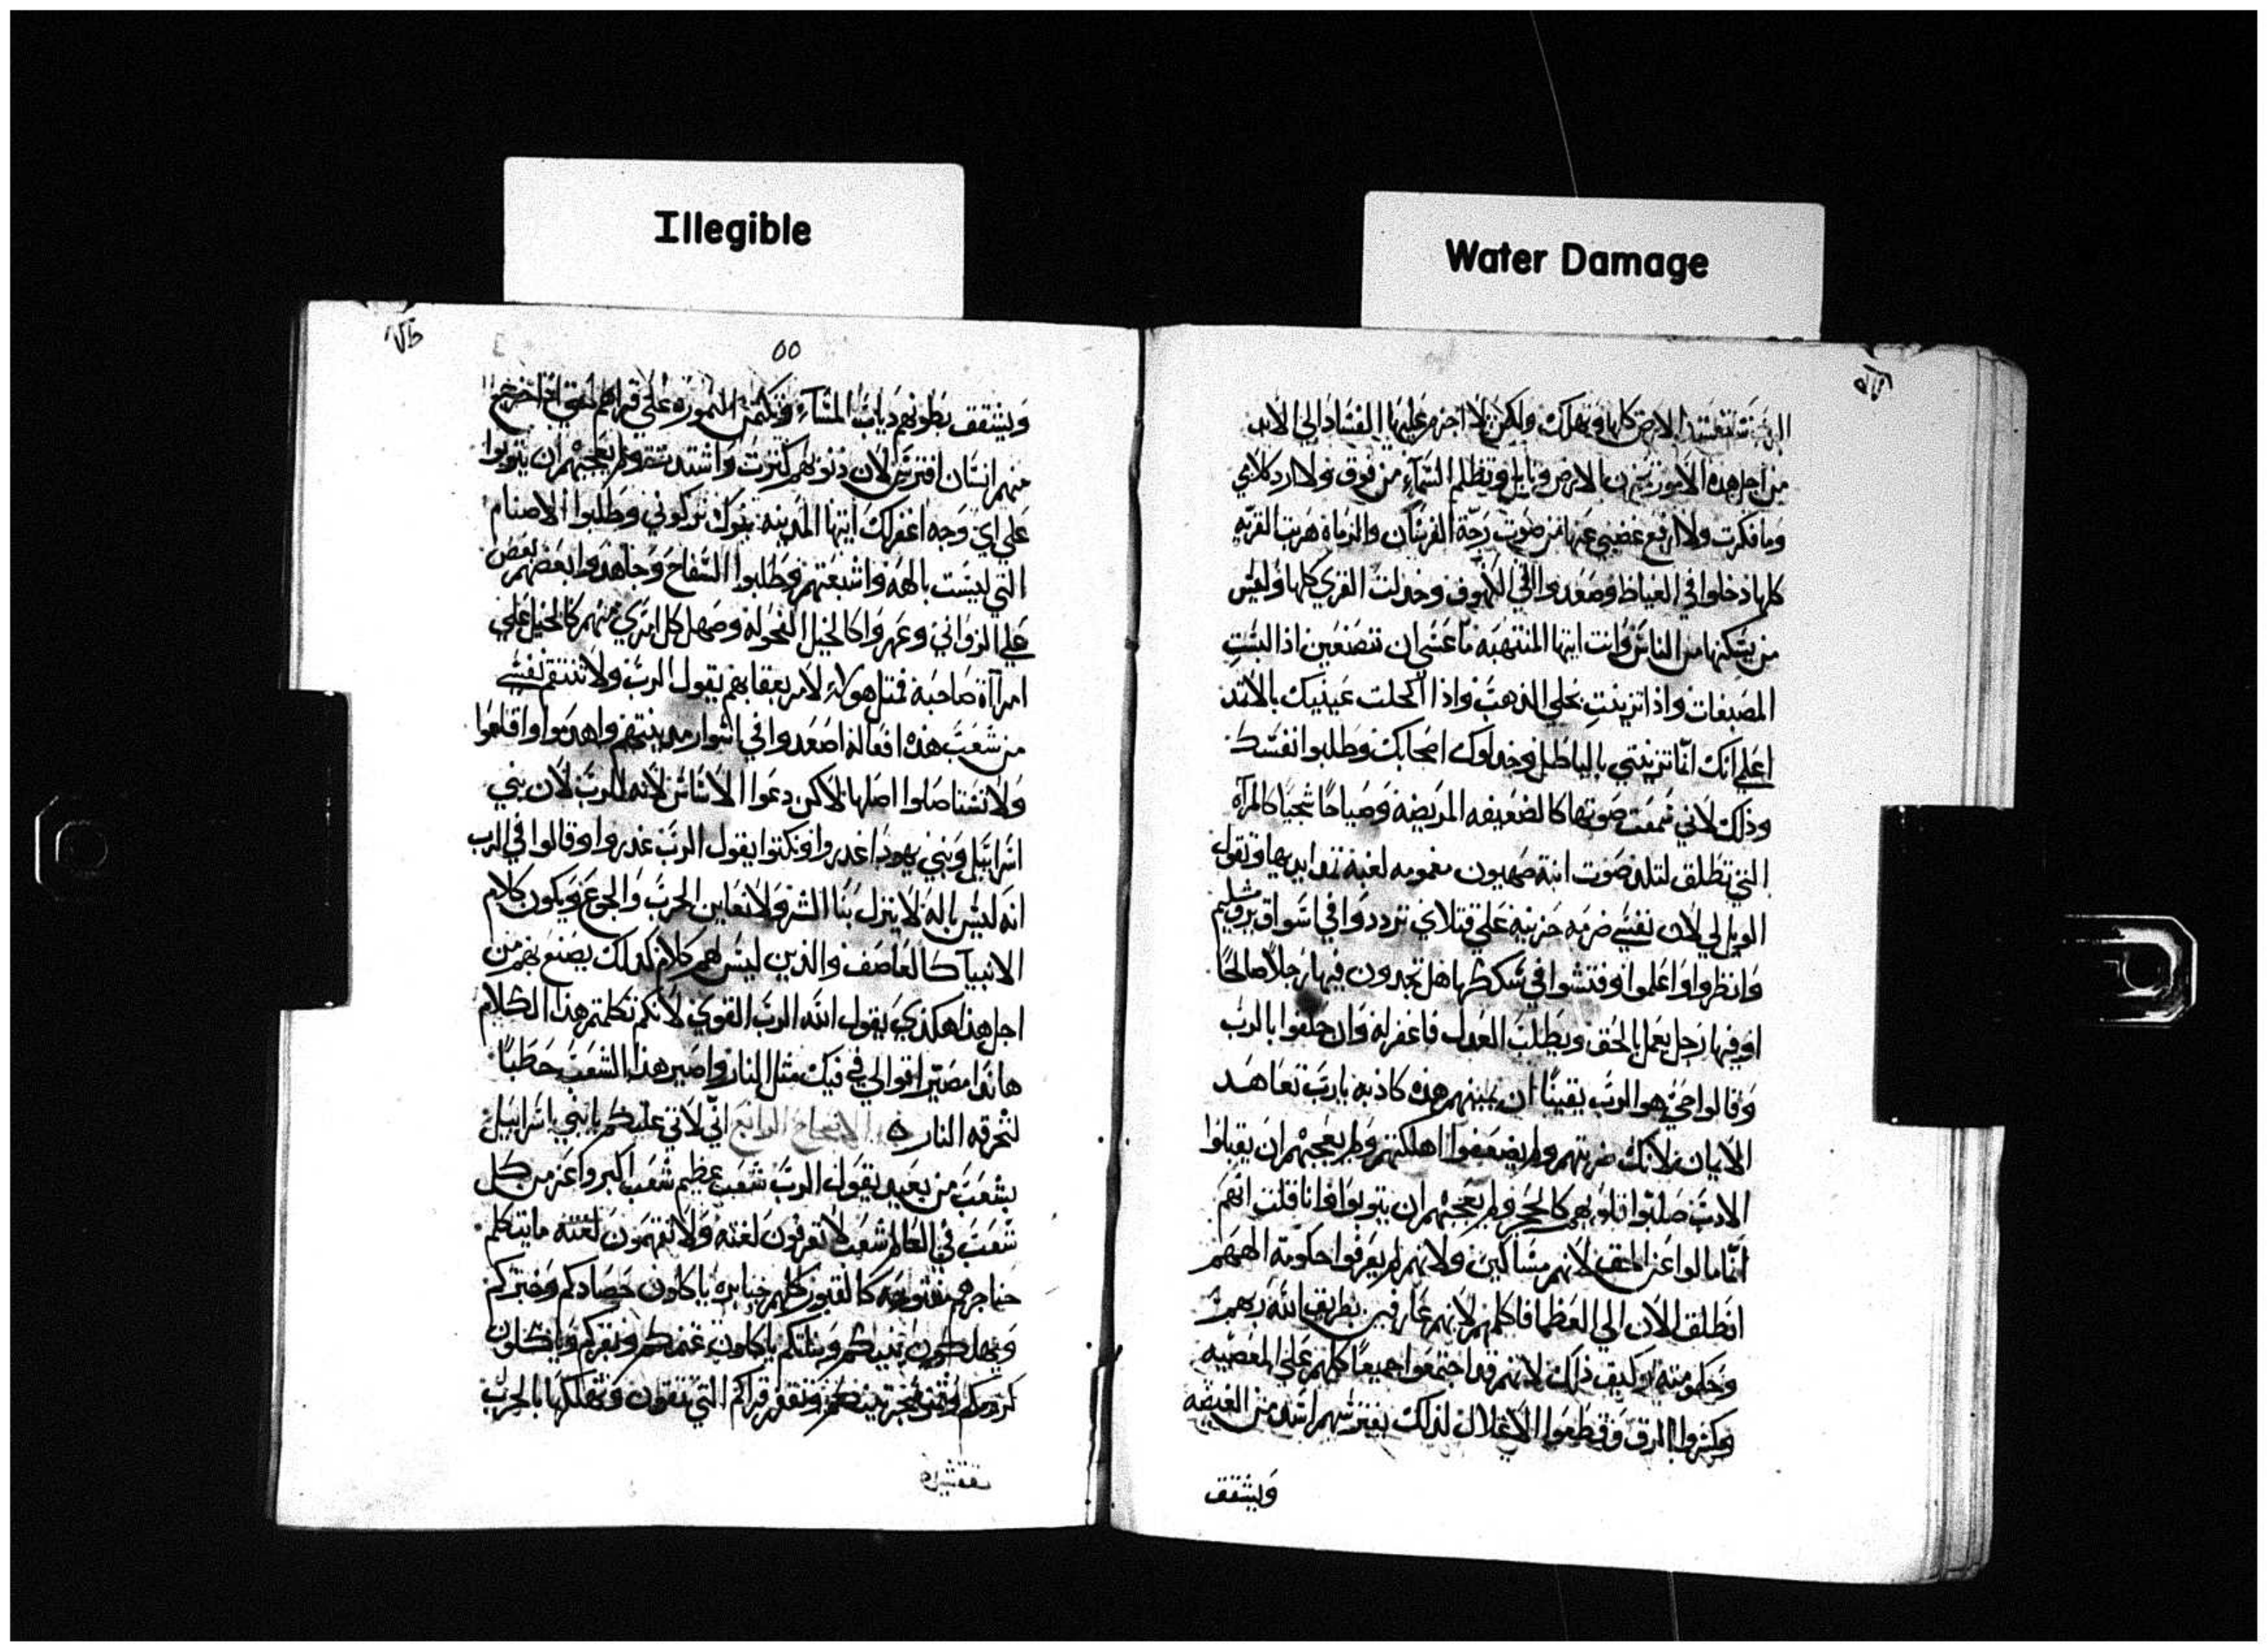 Illegible
Water Damage
الرب ستفسد الارض كلها وتهلك ولكن لا اجزم عليها الفساد الي الابد
من اجل هذه الامور الارض وتظلم السماء من فوق ولا ارد كلامي
وما فكرت ولا ارفع غضبي عنها من صوت رجة الفرسان والرماة هربت القريه
كلها دخلوا في الغياظ وصعدوا الي الكهوف وخذلت القري كلها وليس
من يسكنها من الناس وانت ايتها المنتهبه ما عسي ان تصنعين اذا لبست
المصبغات واذا تزينت بحلي الذهب واذا اكحلت عينيك بالاثمد
اعلمي انك انما تزينتي بالباطل وخذلوك اصحابك وطلبوا نفسك
وذلك لاني سمعت صوتها كالضعيفه المريضة وصياحا شجيا كالمرآه
التي تطلق لتلد صوت ابنة صهيون مغمومه لغبة بيديها وتقول
الويل لي لان نفسي حزينه علي قتلاي ترددوا في اسواق يروشليم
وانظروا واعلموا وفتشوا في سككها هل تجدون فيها رجلا صالحا
او فيها رجل يعمل بالحق ويطلب العدل فاغفر له وان حلفوا بالرب
وقالوا حي هو الرب يقينا ان يمينهم هذه كاذبه يارب تعاهد
الايمان لانك ضربتهم ولم يضعفوا اهلكتهم ولم يعجبهم ان يقبلوا
الادب صلبوا قلوبهم كالحجر ولم يعجبهم ان يتوبوا وانا قلت انهم
انما مالوا عن الحق لانهم مساكين ولانهم لم يعرفوا حكومة الههم
انطلق الان الي العظما فاكلمهم لانهم عارفين بطريق الله ربهم
وحكومته وكيف ذلك لانهم قد اجتمعوا جميعا كلهم علي المعصيه
وكسروا المرق وقطعوا الاغلال لذلك يفترسهم اسد من الغيضه
ويشقق
٥٥
ويشقق بطونهم دياب المساء وتكمن النموره علي قراهم اخرج
منهم انسان افترس لان دنوبهم كثرت واشتدت ولم يعجبهم ان يتوبوا
علي اي وجه اغفر لك ايتها المدينه بنوك تركوني وطلبوا الاصنام
التي ليست بالهه واشبعتهم وطلبوا السفاح وجاهدوا بعضهم بعض
علي الزواني وعهروا كالخيل الفحوله وصهل كل امري منهم كالخيل علي
امرآة صاحبه فمثل هولاء لامر بعقابهم يقول الرب ولا تنتقم نفسي
من شعب هذه افعاله اصعدوا في اسوار مدينتهم واهدموا واقلعوا
ولا تستاصلوا اصلها لاكن دعوا الاساس لانه للرب لان بني
اسراييل وبني يهودا غدروا ونكتوا يقول الرب غدروا وقالوا في الرب
انه ليس باله لا ينزل بنا الشر ولا نعاين الحرب والجوع ويكون كلام
الانبيا كالعاصف والذين ليس لهم كلام لذلك يصنع بهم من
اجل هذا هكذي يقول الله الرب القوي لانكم تكلمتم هذا الكلام
هاندا مصير اقوالي في فيك مثل النار واصير هذا الشعب حطبا
لتحرقه النار الاصحاح الرابع اني لاتي عليكم يابني اسراييل
بشعب من بعيد يقول الرب شعب عظيم شعب اكبر واعز من كل
شعب في العالم شعب لا تعرفون لغته ولا تفهمون لغته ما يتكلم
حناجرهم مفتوحه كالقبور كلهم جبابره ياكلون حصادكم وخبزكم
ويهلكون بنيكم وبناتكم ياكلون غنمكم وبقركم وياكلون
كرومكم وتينكم وتفقر قراكم التي تتقون وتهلكها بالحرب